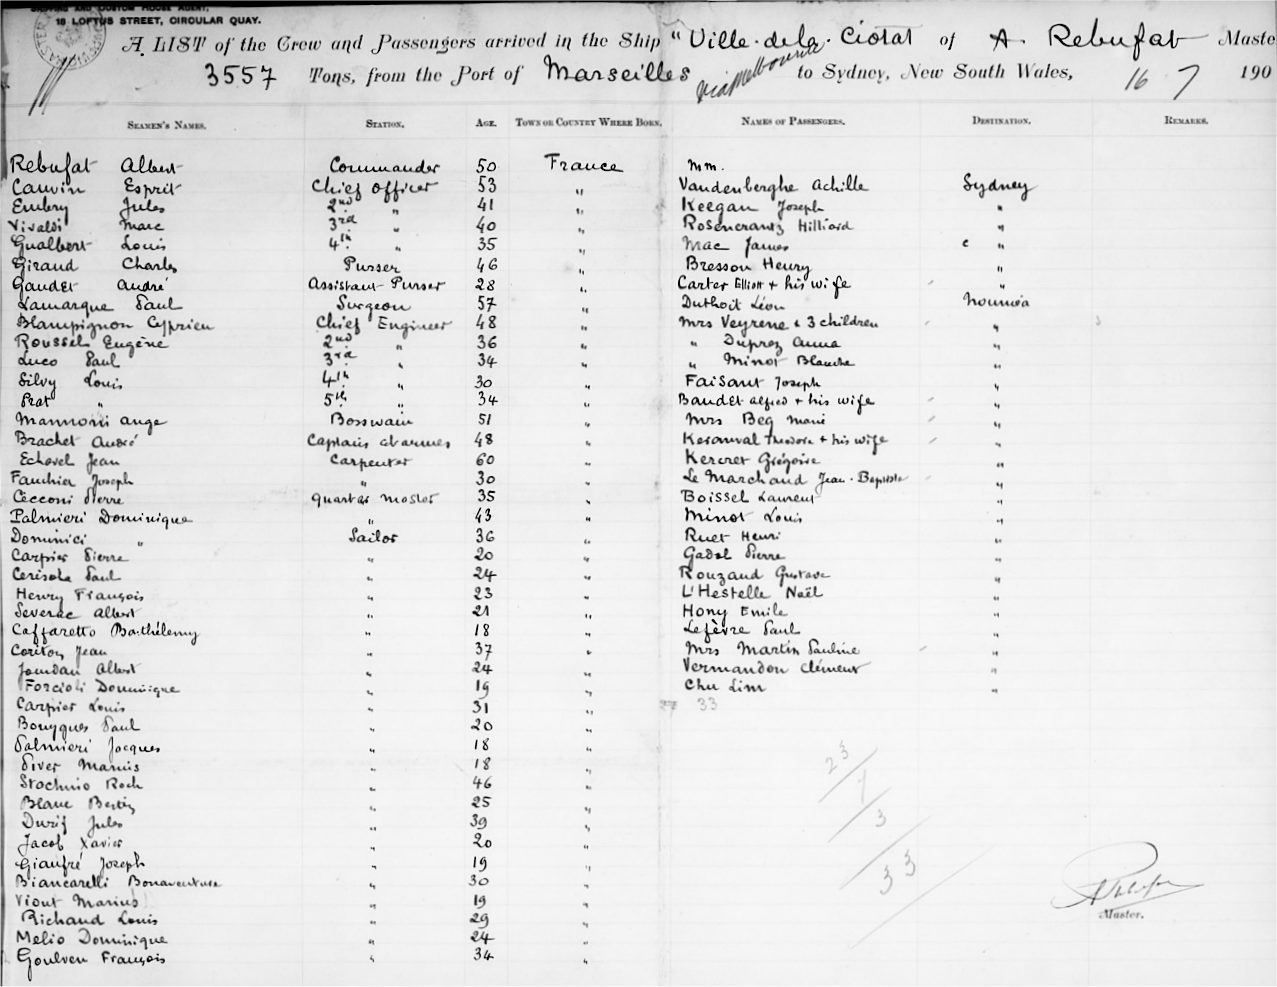 SHIPPING AND CUSTOM HOUSE AGENT,
18 LOFTUS STREET, CIRCULAR QUAY.
A LIST of the Crew and Passengers arrived in the Ship "Ville de la Ciotat of A Rebufat Maste
3557 Tons, from the Port of Marseilles via Melbourne to Sydney, New South Wales, 16 7 190
SEAMEN'S NAMES. STATION. AGE. TOWN OR COUNTRY WHERE BORN. NAMES OF PASSENGERS. DESTINATION. REMARKS.
Rebufat Albert Commander 50 France
Cauvin Esprit Chief Officer 53 "
Embry Jules 2nd " 41 "
Vivaldi Marc 3rd " 40 "
Gualbert Louis 4th " 35 "
Giraud Charles Purser 46 "
Gaudet André Assistant Purser 28 "
Lamarque Paul Surgeon 57 "
Blampignon Cyprien Chief Engineer 48 "
Roussel Eugène 2nd " 36 "
Luco Paul 3rd " 34 "
Silvy Louis 4th " 30 "
Prat " 5th " 34 "
Mannoni Ange Bosswain 51 "
Brachet André Captain d'armes 48 "
Echovel Jean Carpenter 60 "
Fauchier Joseph " 30 "
Cecconi Pierre Quarter master 35 "
Palmieri Dominique " 43 "
Dominici " Sailor 36 "
Carpier Pierre " 20 "
Cerisola Paul " 24 "
Henry François " 23 "
Severac Albert " 21 "
Caffaretto Barthélemy " 18 "
Coriton Jean " 37 "
Jourdan Albert " 24 "
Forcioli Dominique " 19 "
Carpier Louis " 31 "
Bouyques Paul " 20 "
Palmieri Jacques " 18 "
Piver Marius " 18 "
Stochino Roch " 46 "
Blanc Bertin " 25 "
Durif Jules " 39 "
Jacob Xavier " 20 "
Gianfré Joseph " 19 "
Biancarelli Bonaventure " 30 "
Viout Marius " 19 "
Richaud Louis " 29 "
Melio Dominique " 24 "
Goulven François " 34 "
mm.
Vandenberghe Achille Sydney
Keegan Joseph "
Rosencrantz Hilliard "
Mac James c "
Bresson Henry "
Carter Elliott + his wife "
Duthoit Léon Nouméa
Mrs Veyrene & 3 children "
" Duprez Anna "
" Minot Blanche "
Faisant Joseph "
Baudet Alfred + his wife "
Mrs Beg Marie "
Keranval Theodore + his wife "
Kercret Grégoire "
Le Marchand Jean-Baptiste "
Boissel Laurent "
Minot Louis "
Ruet Henri "
Gadal Pierre "
Rouzaud Gustave "
L'Hestelle Naël "
Hony Emile "
Lefèvre Paul "
Mrs Martin Pauline "
Vermandon Clément "
Chu Lim "
33
23
1
3
33
Master.